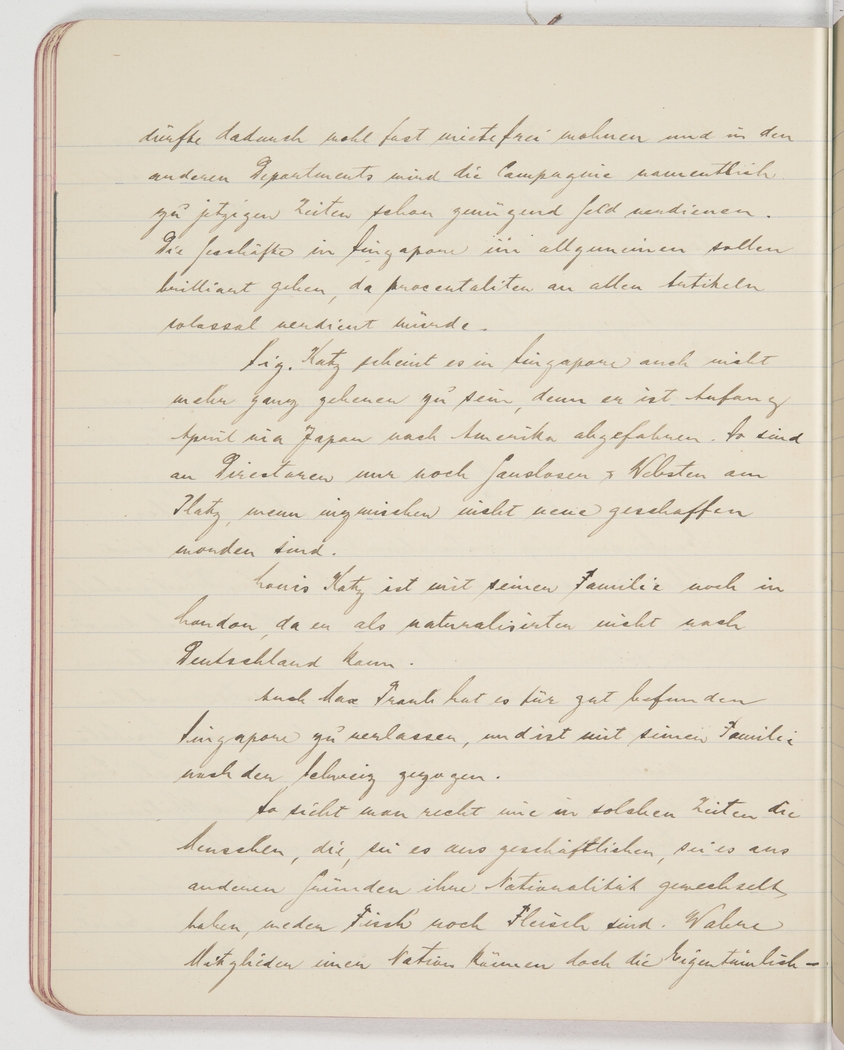 dürfte dadurch wohl fast mietefrei wohnen und in den
anderen Departments wird die Compagnie namentlich
zu jetzigen Zeiten schon genügend Geld verdienen.
Die Geschäfte in Singapore im allgemeinen sollen
brilliant gehen, da procentaliter an allen Artikeln
colossal verdient würde.
Sig. Katz scheint es in Singapore auch nicht
mehr ganz geheuer zu sein, denn er ist Anfang
April via Japan nach Amerika abgefahren. So sind
an Directoren nur noch & Webster am
Platz, wenn inzwischen nicht neue geschaffen
worden sind.
Louis Katz ist mit seiner Familie noch in
London, da er als naturalisirter nicht nach
Deutschland kann.
Auch Max Frank hat es für gut befunden
Singapore zu verlassen, und ist mit seiner Familie
nach der Schweiz gezogen.
So sieht man recht wie in solchen Zeiten die
Menschen, die, sei es aus geschäftlichen, sei es aus
anderen Gründen ihre Nationalität gewechselt
haben, weder Fisch noch Fleisch sind. Wahre
Mitglieder einer Nation können doch die Eigentümlich-